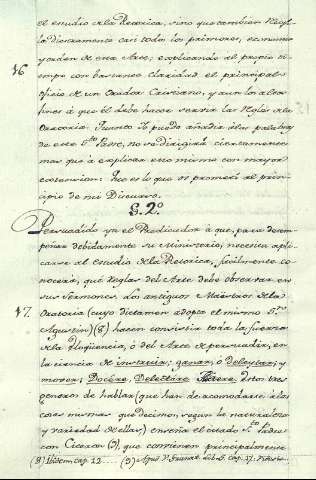 el estudio de la Retorica, sino que tambien
la discretamente casi todos los primores, economia
y orden de este Arte; explicando al propio ti-
16 empo con bastante claridad el principal o-
ficio de un Orador Cristiano, y aun los altos
fines á que él debe hacer servir las Reglas de la
Oratoria. Quanto Yo pueda añadir á las palabras
de este Sto. Padre, no se dirigirá ciertamente
mas que á explicar eso mismo con mayor
extension: Que es lo que os prometí al prin-
cipio de mi Discurso.
§. 2º
Persuadido ya el Predicador á que, para desem-
peñar debidamente su Ministerio, necesita apli-
carse al estudio de la Retorica, facilmente co-
nocerá, qué Reglas del Arte debe observar en
17. sus Sermones. Los antiguos Maestros de la
Oratoria (cuyo dictamen adopta el mismo Sn.
Agustin) (8) hacen consistir toda la fuerza
de la Eloqüencia, ó del Arte de persuadir, en
la ciencia de instruir; ganar, ó deleytar; y
mover; Docere, Delectare, Estos tres
generos de hablar (que han de acomodarse á las
cosas mismas que decimos, segun la naturaleza
y variedad de ellas) enseña el citado Sto. Padre
con Ciceron (9), que convienen principalmente
(8) Ibidem. cap. 12 .... (9) Apud lib. cap. 17.